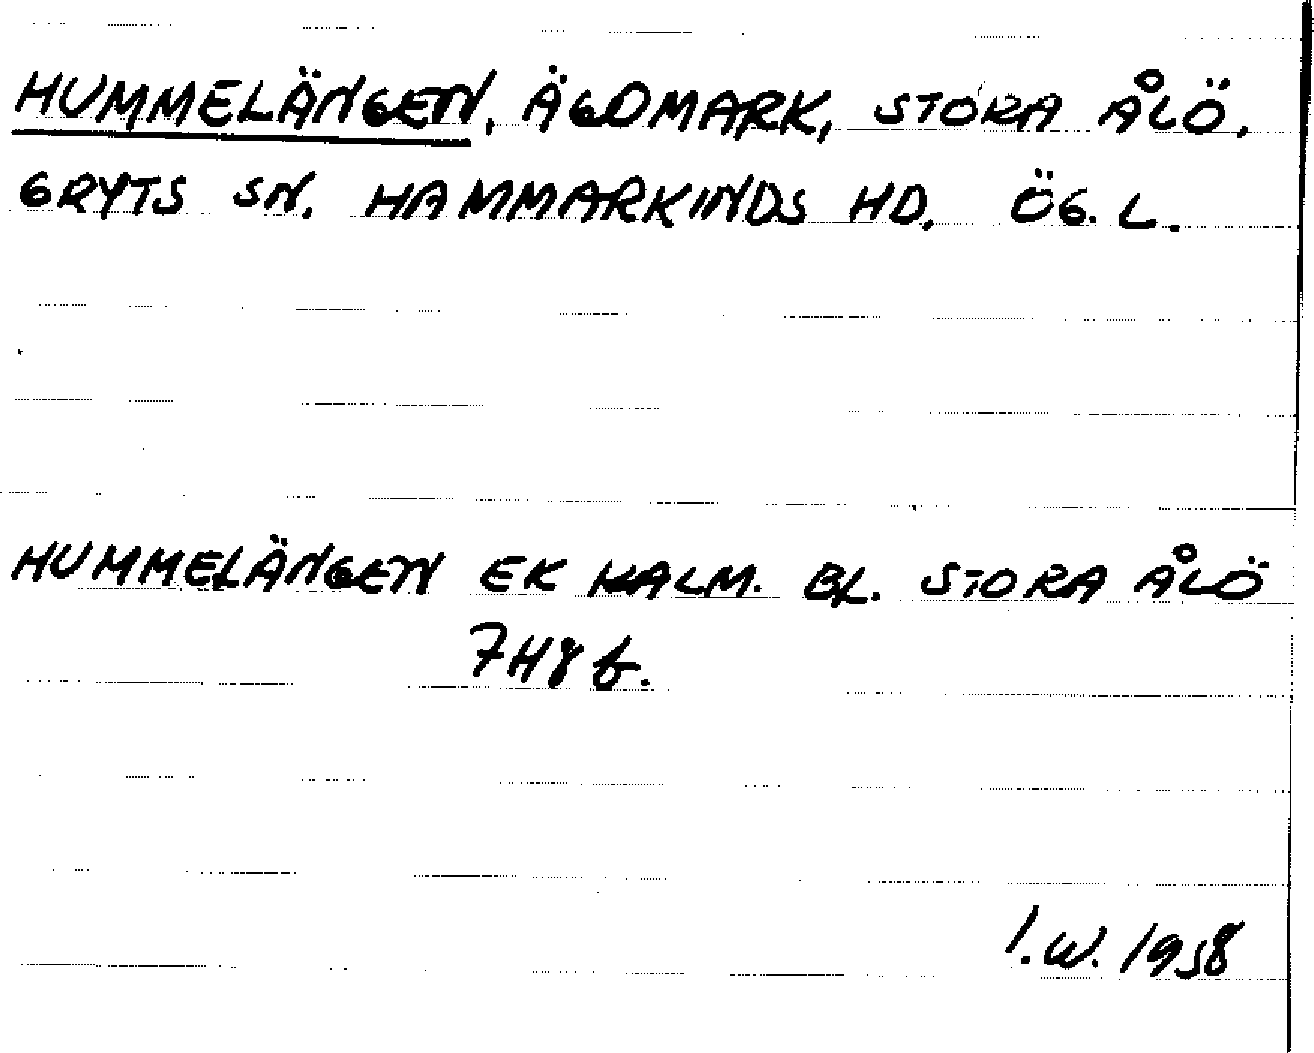 HUMMELÄNGEN, ÄGOMARK, STORA ÅLÖ,
GRYTS SN. HAMMARKINDS HD. ÖG. L.
HUMMELÄNGEN EK HALM. BL. STORA ÅLÖ
7H8f.
I.W. 1958